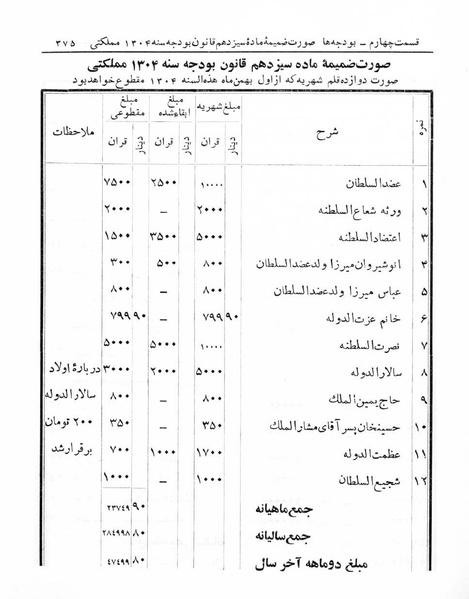 قسمت چهارم ــ بودجه‌ها صورت ضمیمهٔ مادهٔ سیزدهم قانون بودجه سنه ۱۳۰۴ مملکتی ۳۷۵
صورت ضمیمهٔ ماده سیزدهم قانون بودجه سنه ۱۳۰۴ مملکتی
صورت دوازده قلم شهریه که از اول بهمن ماه هذه السنه ۱۳۰۴ مقطوع خواهد بود
نمره شرح مبلغ شهریه مبلغ ابقاء شده مبلغ مقطوعی ملاحظات
قران دینار قران دینار قران دینار
۱ عضد السلطان ۱۰۰۰۰ ۲۵۰۰ ۷۵۰۰
۲ ورثه شعاع السلطنه ۲۰۰۰ ــ ۲۰۰۰
۳ اعتضاد السلطنه ۵۰۰۰ ۳۵۰۰ ۱۵۰۰
۴ انوشیروان میرزا ولد عضد السلطان ۸۰۰ ۵۰۰ ۳۰۰
۵ عباس میرزا ولد عضد السلطان ۸۰۰ ــ ۸۰۰
۶ خانم عزت الدوله ۷۹۹ ۹۰ ــ ۷۹۹ ۹۰
۷ نصرت السلطنه ۱۰۰۰۰ ۵۰۰۰ ۵۰۰۰
۸ سالار الدوله ۵۰۰۰ ۲۰۰۰ ۳۰۰۰ دربارهٔ اولاد
۹ حاج یمین الملک ۸۰۰ ــ ۸۰۰ سالار الدوله
۱۰ حسینخان پسر آقای مشار الملک ۳۵۰ ــ ۳۵۰ ۲۰۰ تومان
۱۱ عظمت الدوله ۱۷۰۰ ۱۰۰۰ ۷۰۰ برقرار شد
۱۲ شجیع السلطان ۱۰۰۰ ــ ۱۰۰۰
جمع ماهیانه ۲۳۷۴۹ ۹۰
جمع سالیانه ۲۸۴۹۹۸ ۸۰
مبلغ دو ماهه آخر سال ۴۷۴۹۹ ۸۰